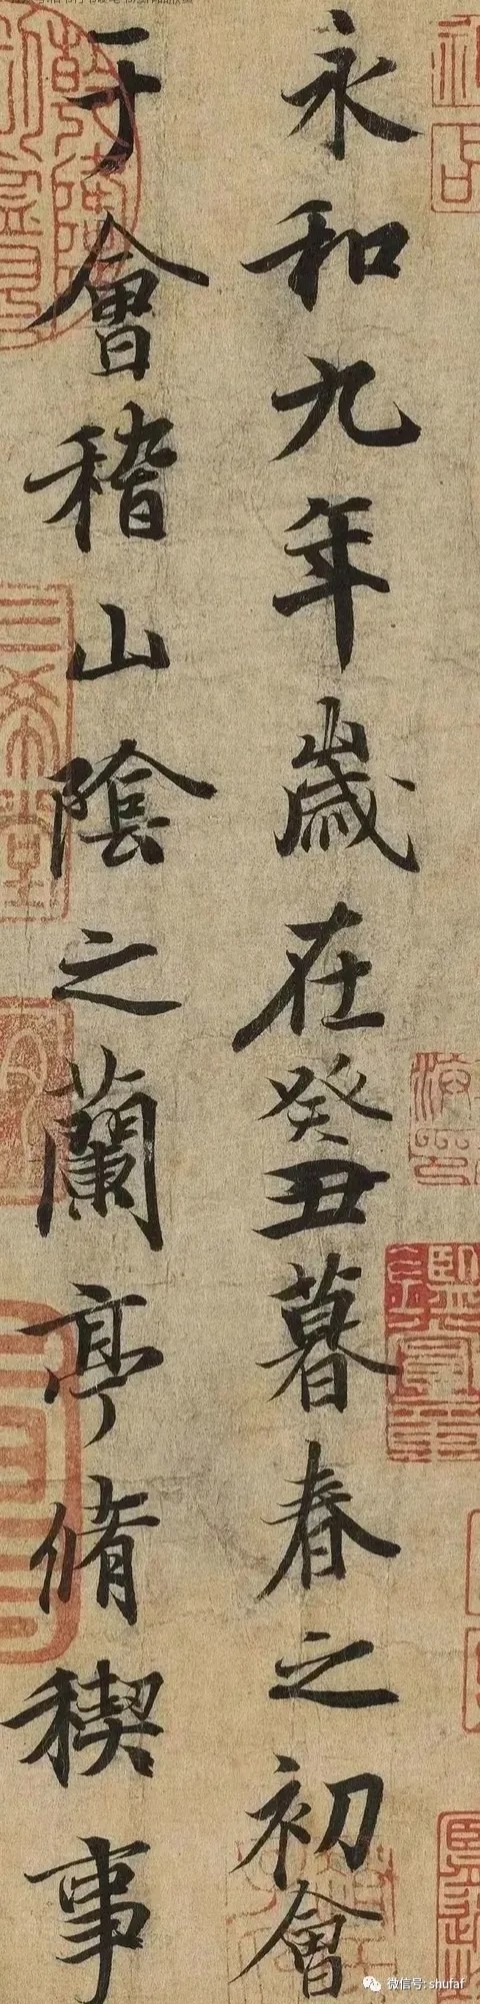 永和九年歲在癸丑暮春之初會
于會稽山陰之蘭亭脩稧事
微信号: shufaf